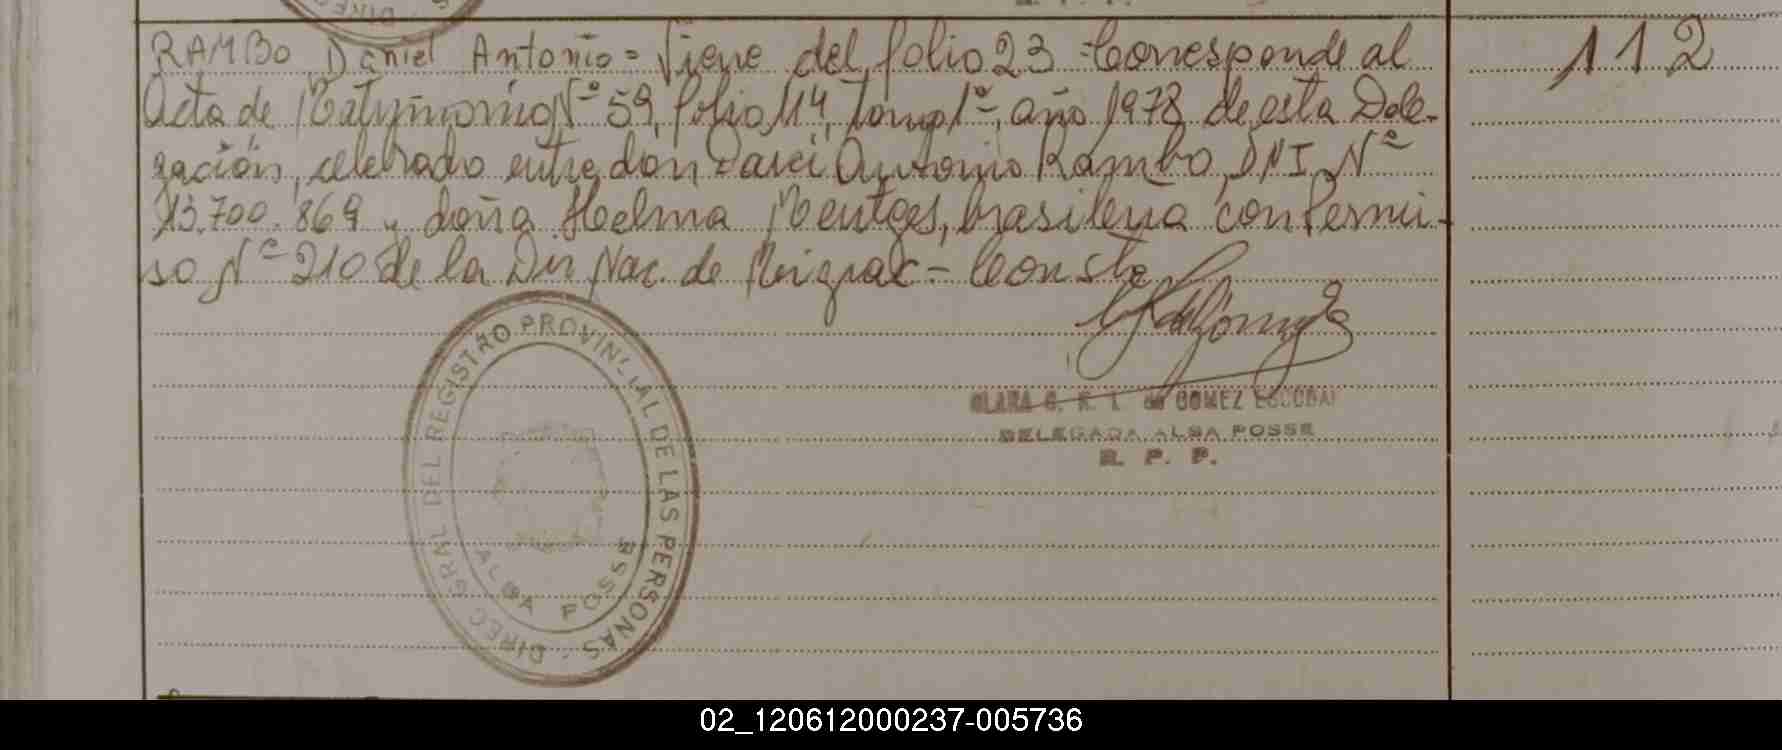 RAMBO Daniel Antonio = Viene del folio 23 - Corresponde al
Acta de Matrimonio Nº 59, folio 114, tomo 1º, año 1978 de esta Dele-
gación, celebrado entre don Darci Antonio Rambo, DNI. Nº
13.700.869 y doña Helma Mentges, brasilera con Permi-
so Nº 210 de la Dir. Nac. de Migrac - Conste
112
CLARA de GOMEZ ESCOBAR
DELEGADA ALBA POSSE
R. P. P.
DIREC. GRAL. DEL REGISTRO PROVINCIAL DE LAS PERSONAS
ALBA POSSE
02_120612000237-005736